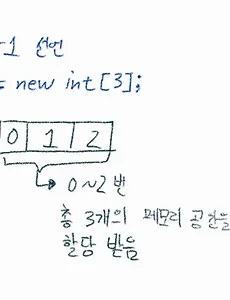 -1 선언
= new int[3];
0 1 2
0~2 번
총 3개의 메모리 공간을
할당 받음